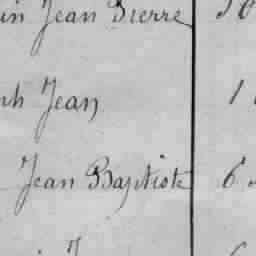 in Jean Pierre
ph Jean 1
Jean Baptiste 6